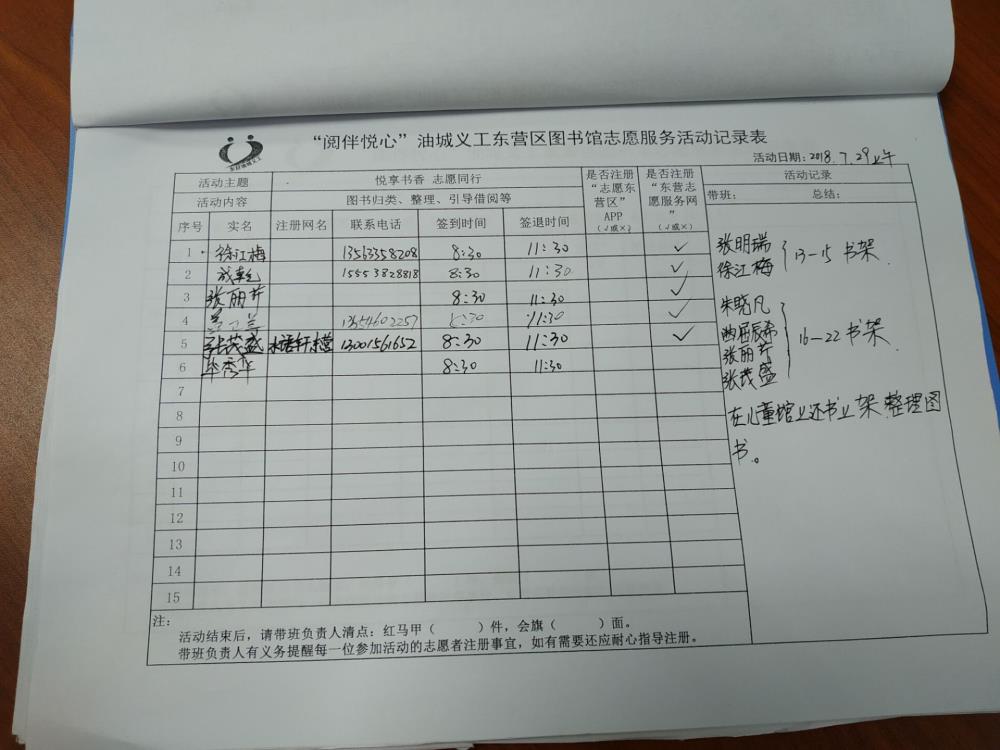 东营油城义工
“阅伴悦心”油城义工东营区图书馆志愿服务活动记录表
活动日期：2018.7.29上午
活动主题 悦享书香 志愿同行 是否注册“志愿东营区”APP（√或×） 是否注册“东营志愿服务网”（√或×） 活动记录
活动内容 图书归类、整理、引导借阅等 带班： 总结：
序号 实名 注册网名 联系电话 签到时间 签退时间
1 徐江梅 13563558208 8:30 11:30 ✓
2 15553828818 8:30 11:30 ✓
3 张丽芹 8:30 11:30 ✓
4 兰 13554602257 8:30 11:30 ✓
5 张茂盛 13001561652 8:30 11:30 ✓
6 毕秀华 8:30 11:30
7
8
9
10
11
12
13
14
15
张明瑞
徐江梅
13-15 书架
朱晓凡
张丽芹
张茂盛
16-22 书架
在儿童馆上还书上架，整理图
书。
注：
活动结束后，请带班负责人清点：红马甲（ ）件，会旗（ ）面。
带班负责人有义务提醒每一位参加活动的志愿者注册事宜，如有需要还应耐心指导注册。